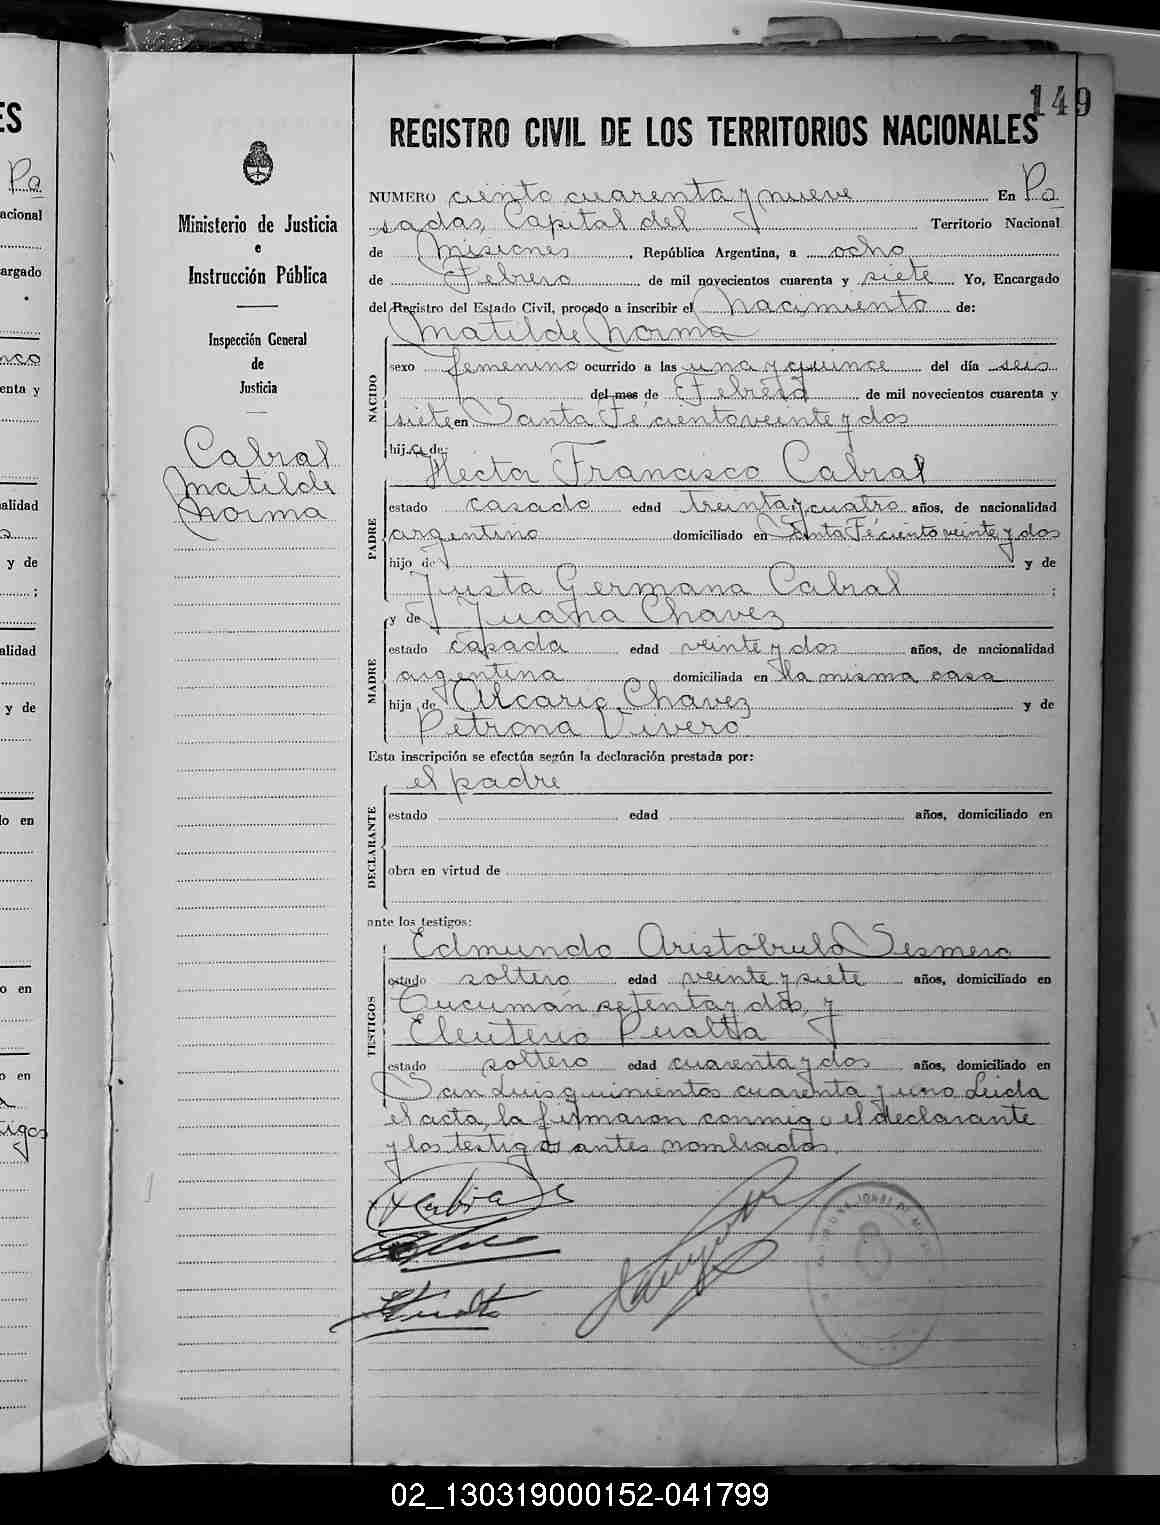 149
REGISTRO CIVIL DE LOS TERRITORIOS NACIONALES
Ministerio de Justicia
e
Instrucción Pública
Inspección General
de
Justicia
Cabral
Matilde
Norma
NUMERO ciento cuarenta y nueve En Po
sadas, Capital del Territorio Nacional
de Misiones, República Argentina, a ocho
de Febrero de mil novecientos cuarenta y siete Yo, Encargado
del Registro del Estado Civil, procedo a inscribir el nacimiento de:
Matilde Norma
NACIDO
sexo femenino ocurrido a las una y quince del día seis
del mes de Febrero de mil novecientos cuarenta y
siete en Santa Fé ciento veinte y dos
hija de:
Héctor Francisco Cabral
PADRE
estado casado edad treinta y cuatro años, de nacionalidad
argentino domiciliado en Santa Fé ciento veinte y dos
hijo de y de
Justa Germana Cabral ;
y de Juana Chavez
MADRE
estado casada edad veinte y dos años, de nacionalidad
argentina domiciliada en la misma casa
hija de Alcario Chavez y de
Petrona Vivero
Esta inscripción se efectúa según la declaración prestada por:
el padre
DECLARANTE
estado edad años, domiciliado en
obra en virtud de
ante los testigos:
Edmundo Aristóbulo Sesmero
TESTIGOS
estado soltero edad veinte y siete años, domiciliado en
Tucumán setenta y dos, y
Eleuterio Peralta
estado soltero edad cuarenta y dos años, domiciliado en
San Luis quinientos cuarenta y uno Leida
el acta, la firmaron conmigo el declarante
y los testigos antes nombrados.
ES
Pa
acional
argado
enta y
alidad
y de
;
alidad
y de
do en
o en
o en
02_130319000152-041799